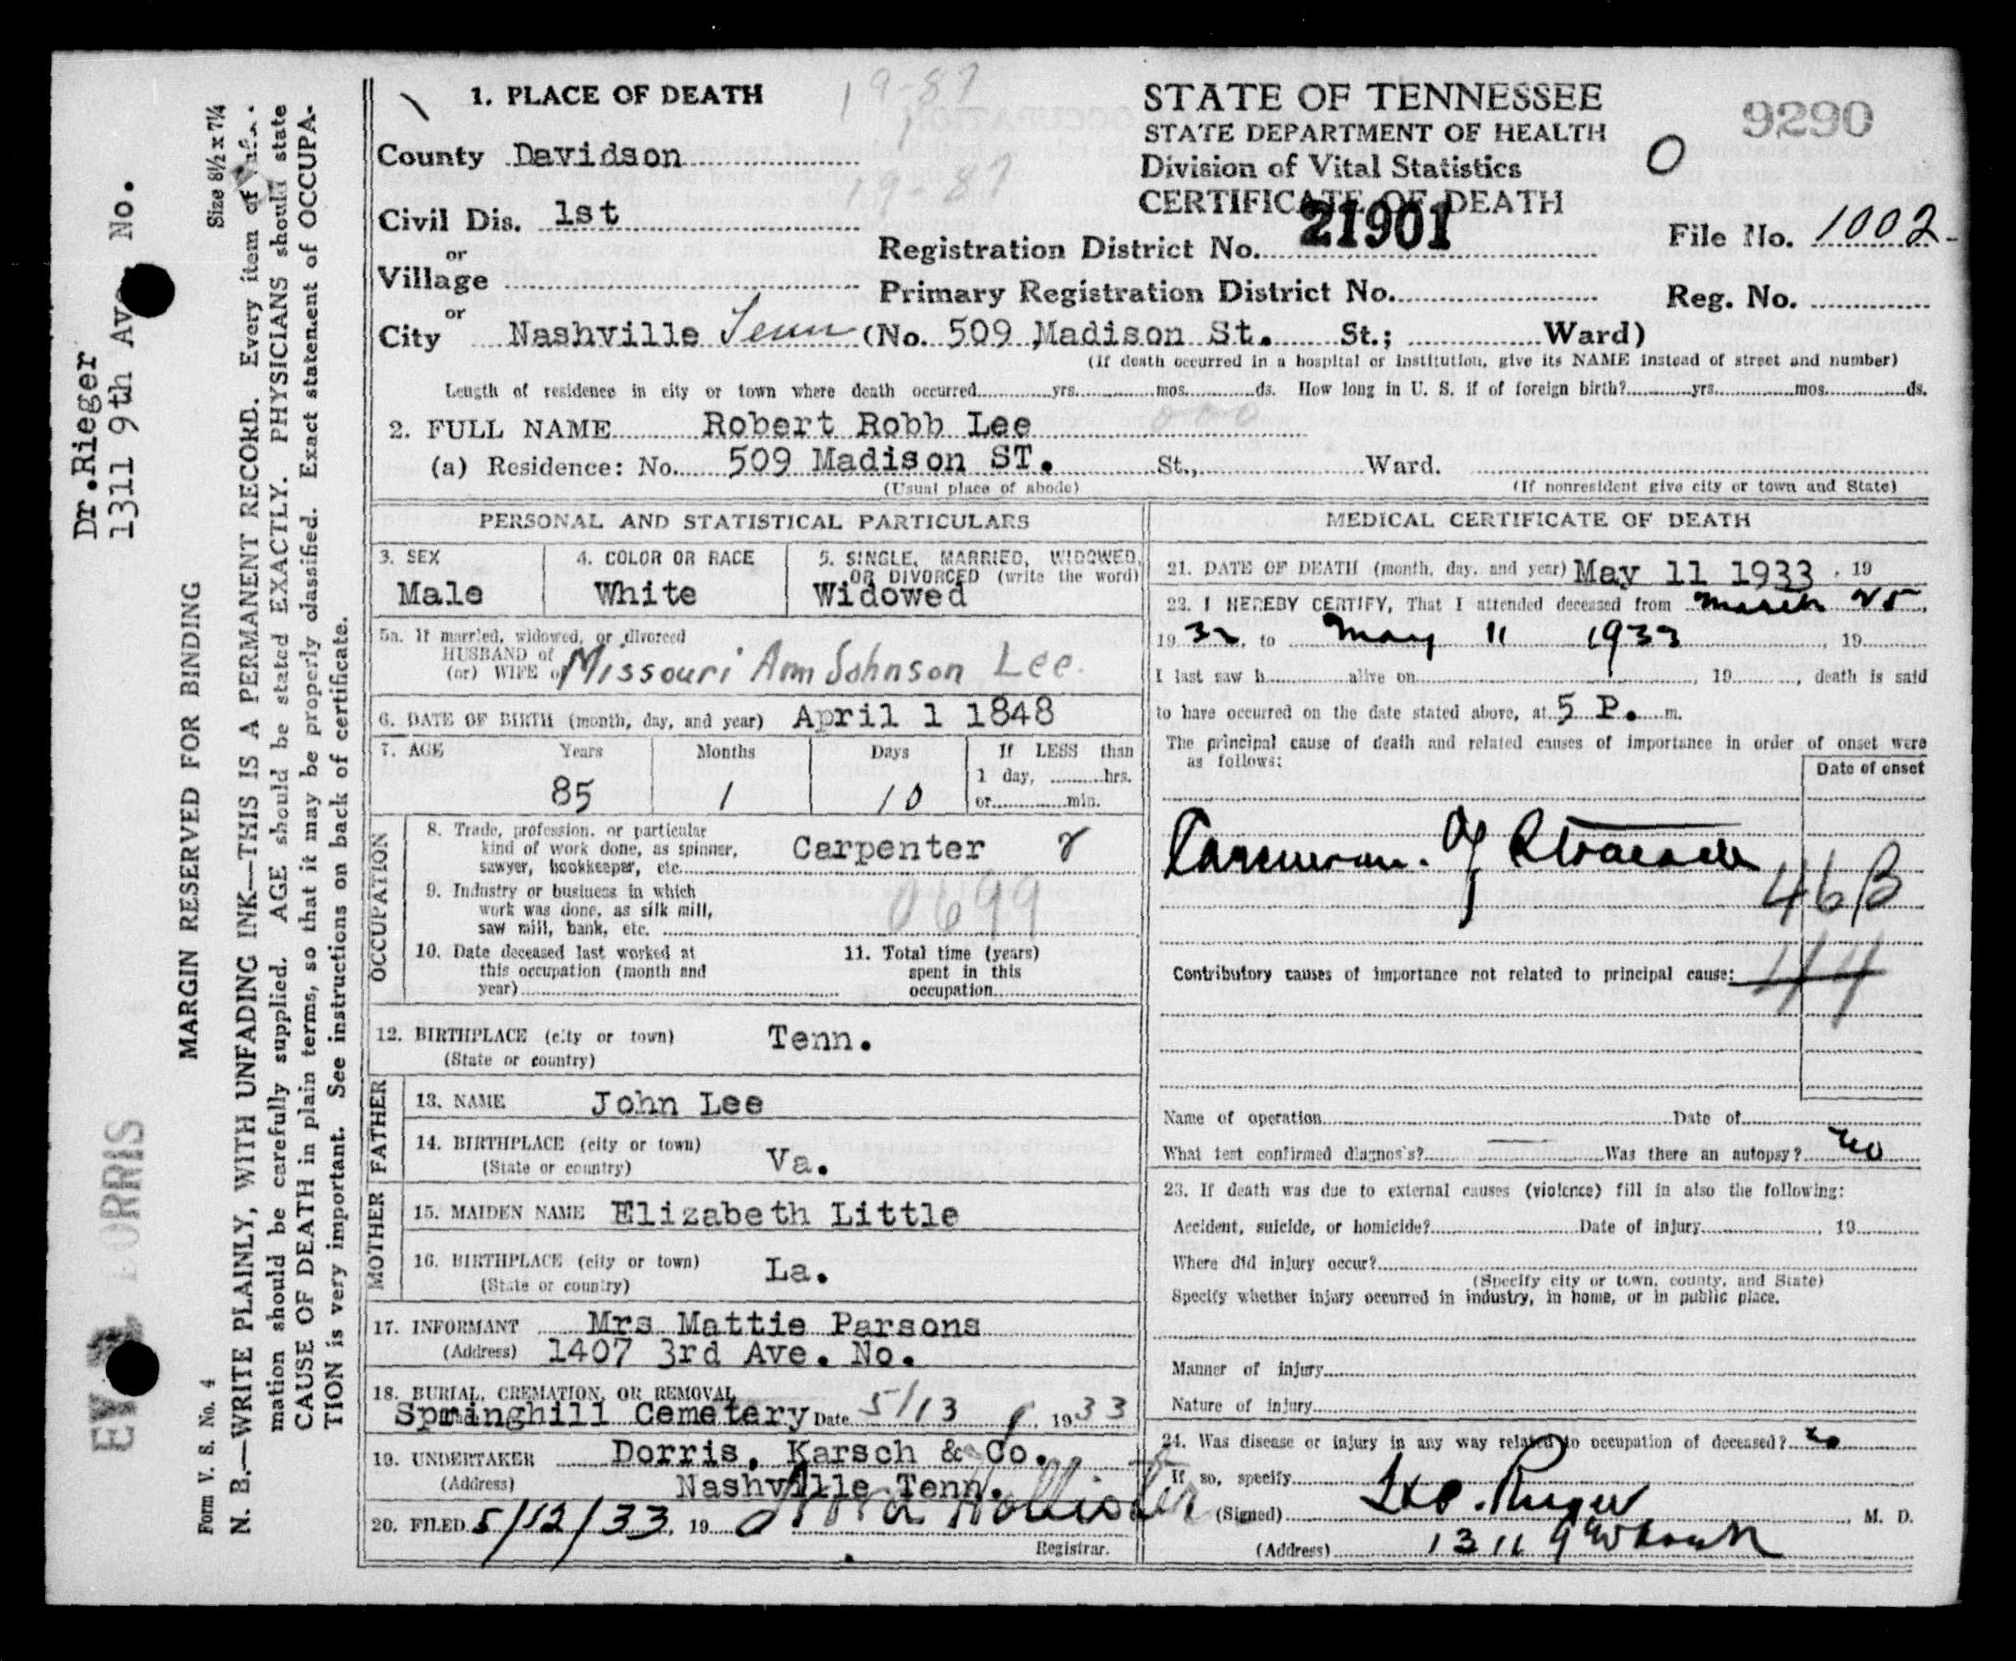 Dr.Rieger
1311 9th Ave No.
EY DORRIS
Size 8½ x 7¼
MARGIN RESERVED FOR BINDING
Form V. S. No. 4
N. B.—WRITE PLAINLY, WITH UNFADING INK—THIS IS A PERMANENT RECORD. Every item of
mation should be carefully supplied. AGE should be stated EXACTLY. PHYSICIANS should state
CAUSE OF DEATH in plain terms, so that it may be properly classified. Exact statement of OCCUPA-
TION is very important. See instructions on back of certificate.
1. PLACE OF DEATH
19-87
19 87
County Davidson
Civil Dis. 1st
or
Village
or
City Nashville Tenn (No. 509 Madison St. St.; Ward)
STATE OF TENNESSEE
STATE DEPARTMENT OF HEALTH
Division of Vital Statistics
CERTIFICATE OF DEATH
0
9290
21901
Registration District No.
File No. 1002
Primary Registration District No.
Reg. No.
(If death occurred in a hospital or institution, give its NAME instead of street and number)
Length of residence in city or town where death occurred yrs. mos. ds. How long in U. S. if of foreign birth? yrs. mos. ds.
2. FULL NAME Robert Robb Lee 000
(a) Residence: No. 509 Madison ST. St., Ward.
(Usual place of abode) (If nonresident give city or town and State)
PERSONAL AND STATISTICAL PARTICULARS
3. SEX
Male
4. COLOR OR RACE
White
5. SINGLE, MARRIED, WIDOWED,
OR DIVORCED (write the word)
Widowed
5a. If married, widowed, or divorced
HUSBAND of
(or) WIFE of Missouri Ann Johnson Lee.
6. DATE OF BIRTH (month, day, and year) April 1 1848
7. AGE Years Months Days If LESS than
1 day, hrs.
or min.
85 1 10
OCCUPATION
8. Trade, profession, or particular
kind of work done, as spinner,
sawyer, bookkeeper, etc. Carpenter
9. Industry or business in which
work was done, as silk mill,
saw mill, bank, etc. 0699
10. Date deceased last worked at
this occupation (month and
year)
11. Total time (years)
spent in this
occupation
12. BIRTHPLACE (city or town) Tenn.
(State or country)
FATHER
13. NAME John Lee
14. BIRTHPLACE (city or town)
(State or country) Va.
MOTHER
15. MAIDEN NAME Elizabeth Little
16. BIRTHPLACE (city or town)
(State or country) La.
17. INFORMANT Mrs Mattie Parsons
(Address) 1407 3rd Ave. No.
18. BURIAL, CREMATION, OR REMOVAL
Springhill Cemetery Date 5/13, 1933
19. UNDERTAKER Dorris, Karsch & Co.
(Address) Nashville Tenn.
20. FILED 5/12/33, 19 Hollister
Registrar.
MEDICAL CERTIFICATE OF DEATH
21. DATE OF DEATH (month, day, and year) May 11 1933, 19
22. I HEREBY CERTIFY, That I attended deceased from March 25,
1932, to May 11 1933, 19
I last saw h alive on , 19 , death is said
to have occurred on the date stated above, at 5 P. m.
The principal cause of death and related causes of importance in order of onset were
as follows:
Date of onset
of
46B
Contributory causes of importance not related to principal cause:
44
Name of operation Date of
What test confirmed diagnosis? — Was there an autopsy? no
23. If death was due to external causes (violence) fill in also the following:
Accident, suicide, or homicide? Date of injury , 19
Where did injury occur?
(Specify city or town, county, and State)
Specify whether injury occurred in industry, in home, or in public place.
Manner of injury
Nature of injury
24. Was disease or injury in any way related to occupation of deceased? no
If so, specify
(Signed) M. D.
(Address) 1311 9